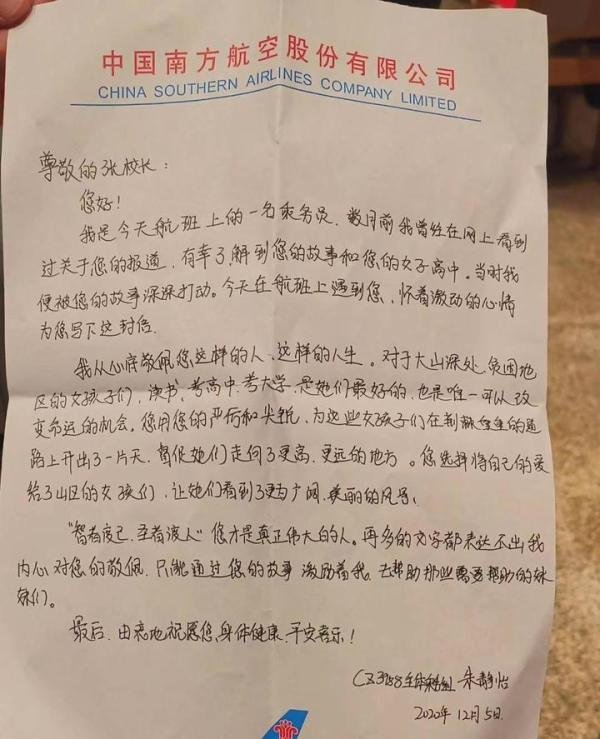 中国南方航空股份有限公司
CHINA SOUTHERN AIRLINES COMPANY LIMITED
尊敬的张校长：
您好！
我是今天航班上的一名乘务员，数月前我曾经在网上看到
过关于您的报道，有幸了解到您的故事和您的女子高中。当时我
便被您的故事深深打动。今天在航班上遇到您，怀着激动的心情
为您写下这封信。
我从心底敬佩您这样的人、这样的人生。对于大山深处、贫困地
区的女孩子们，读书、考高中、考大学，是她们最好的、也是唯一可以改
变命运的机会。您用您的严苛和尖锐，为这些女孩子们在荆棘丛生的道
路上开出了一片天，督促她们走向了更高、更远的地方。您选择将自己的爱
给了山区的女孩们，让她们看到了更为广阔、美丽的风景。
“智者度己，圣者渡人”您才是真正伟大的人。再多的文字都表达不出我
内心对您的敬佩，只能通过您的故事激励着我，去帮助那些需要帮助的妹
妹们。
最后，由衷地祝愿您，身体健康，平安喜乐！
CZ3958 朱静怡
2020年12月5日